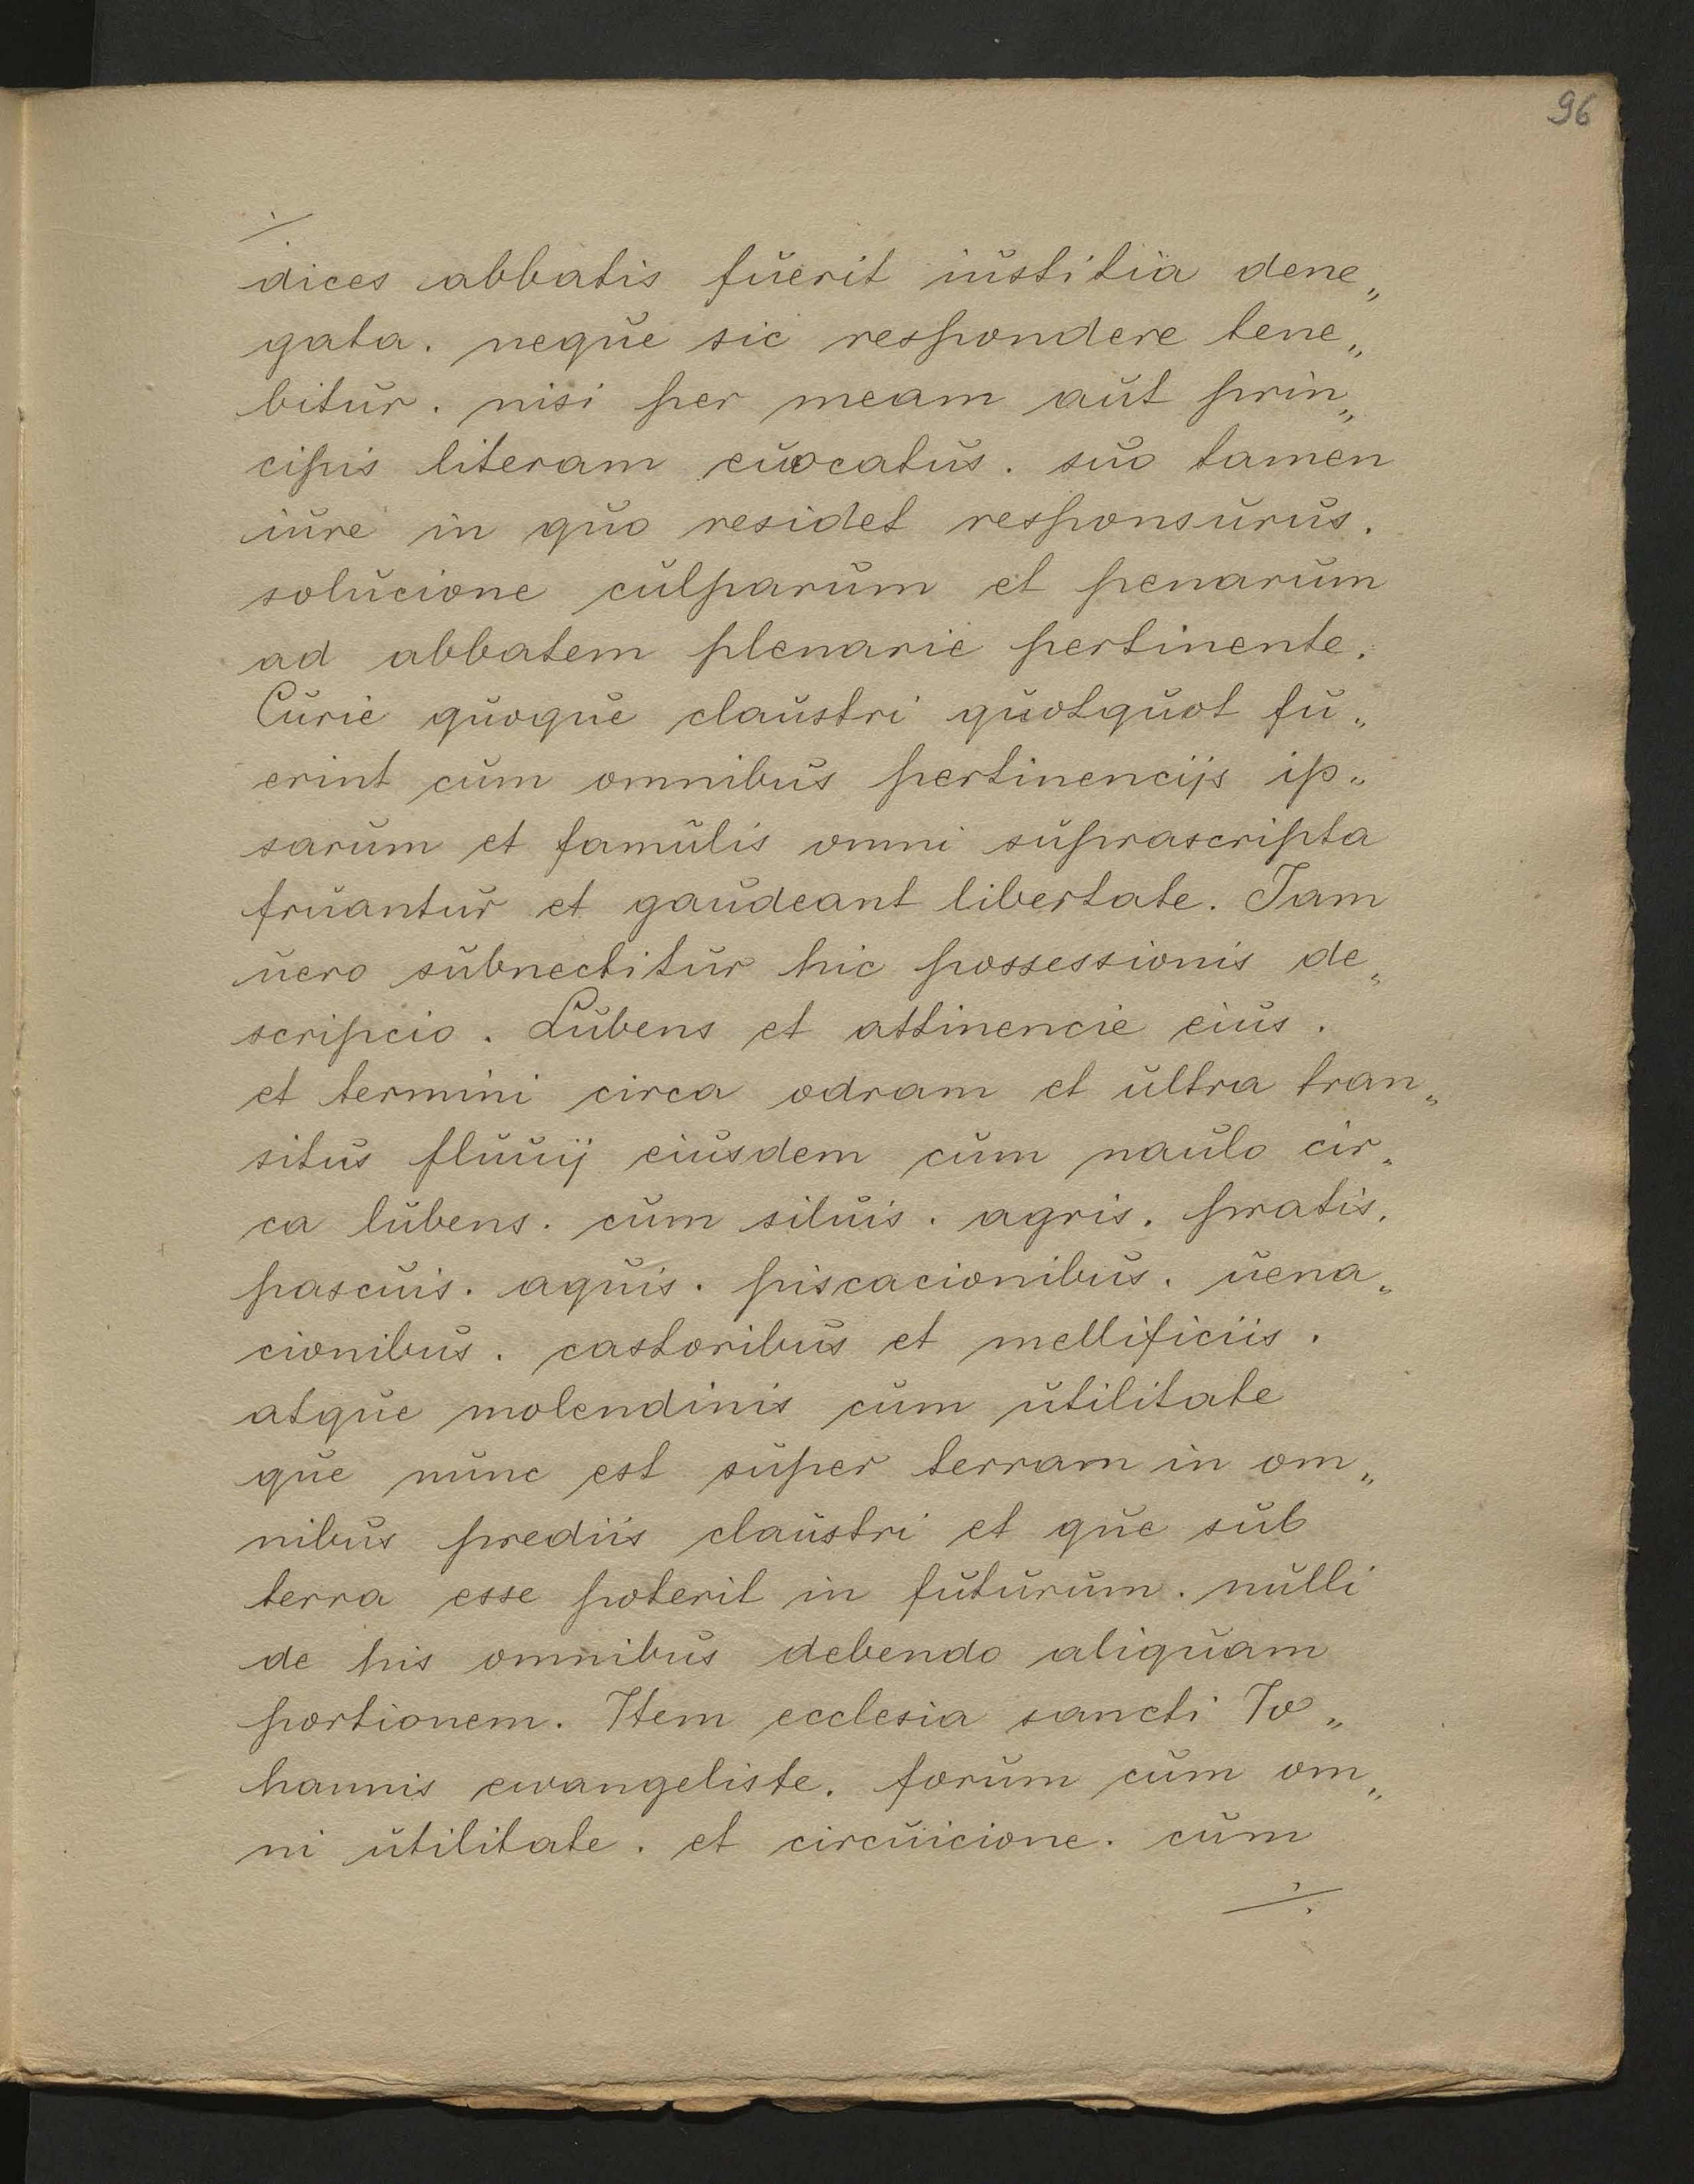 96
./.
dices abbatis fuerit iustitia dene„
gata. neque sic respondere tene„
bitur. nisi per meam aut prin„
cipis literam euocatus. suo tamen
iure in quo residet responsurus.
solucione culparum et penarum
ad abbatem plenarie pertinente.
Curie quoque claustri quotquot fu„
erint cum omnibus pertinencijs ip„
sarum et famulis omni suprascripta
fruantur et gaudeant libertate. Iam
uero subnectitur hic possessionis de„
scripcio. Lubens et attinencie eius.
et termini circa odram et ultra tran„
situs fluuij eiusdem cum naulo cir„
ca lubens. cum siluis. agris. pratis.
pascuis. aquis. piscacionibus. uena„
cionibus. castoribus et mellificiis.
atque molendinis cum utilitate
que nunc est super terram in om„
nibus prediis claustri et que sub
terra esse poterit in futurum. nulli
de his omnibus debendo aliquam
portionem. Item ecclesia sancti Io„
hannis ewangeliste. forum cum om„
ni utilitate. et circuicione. cum
./.